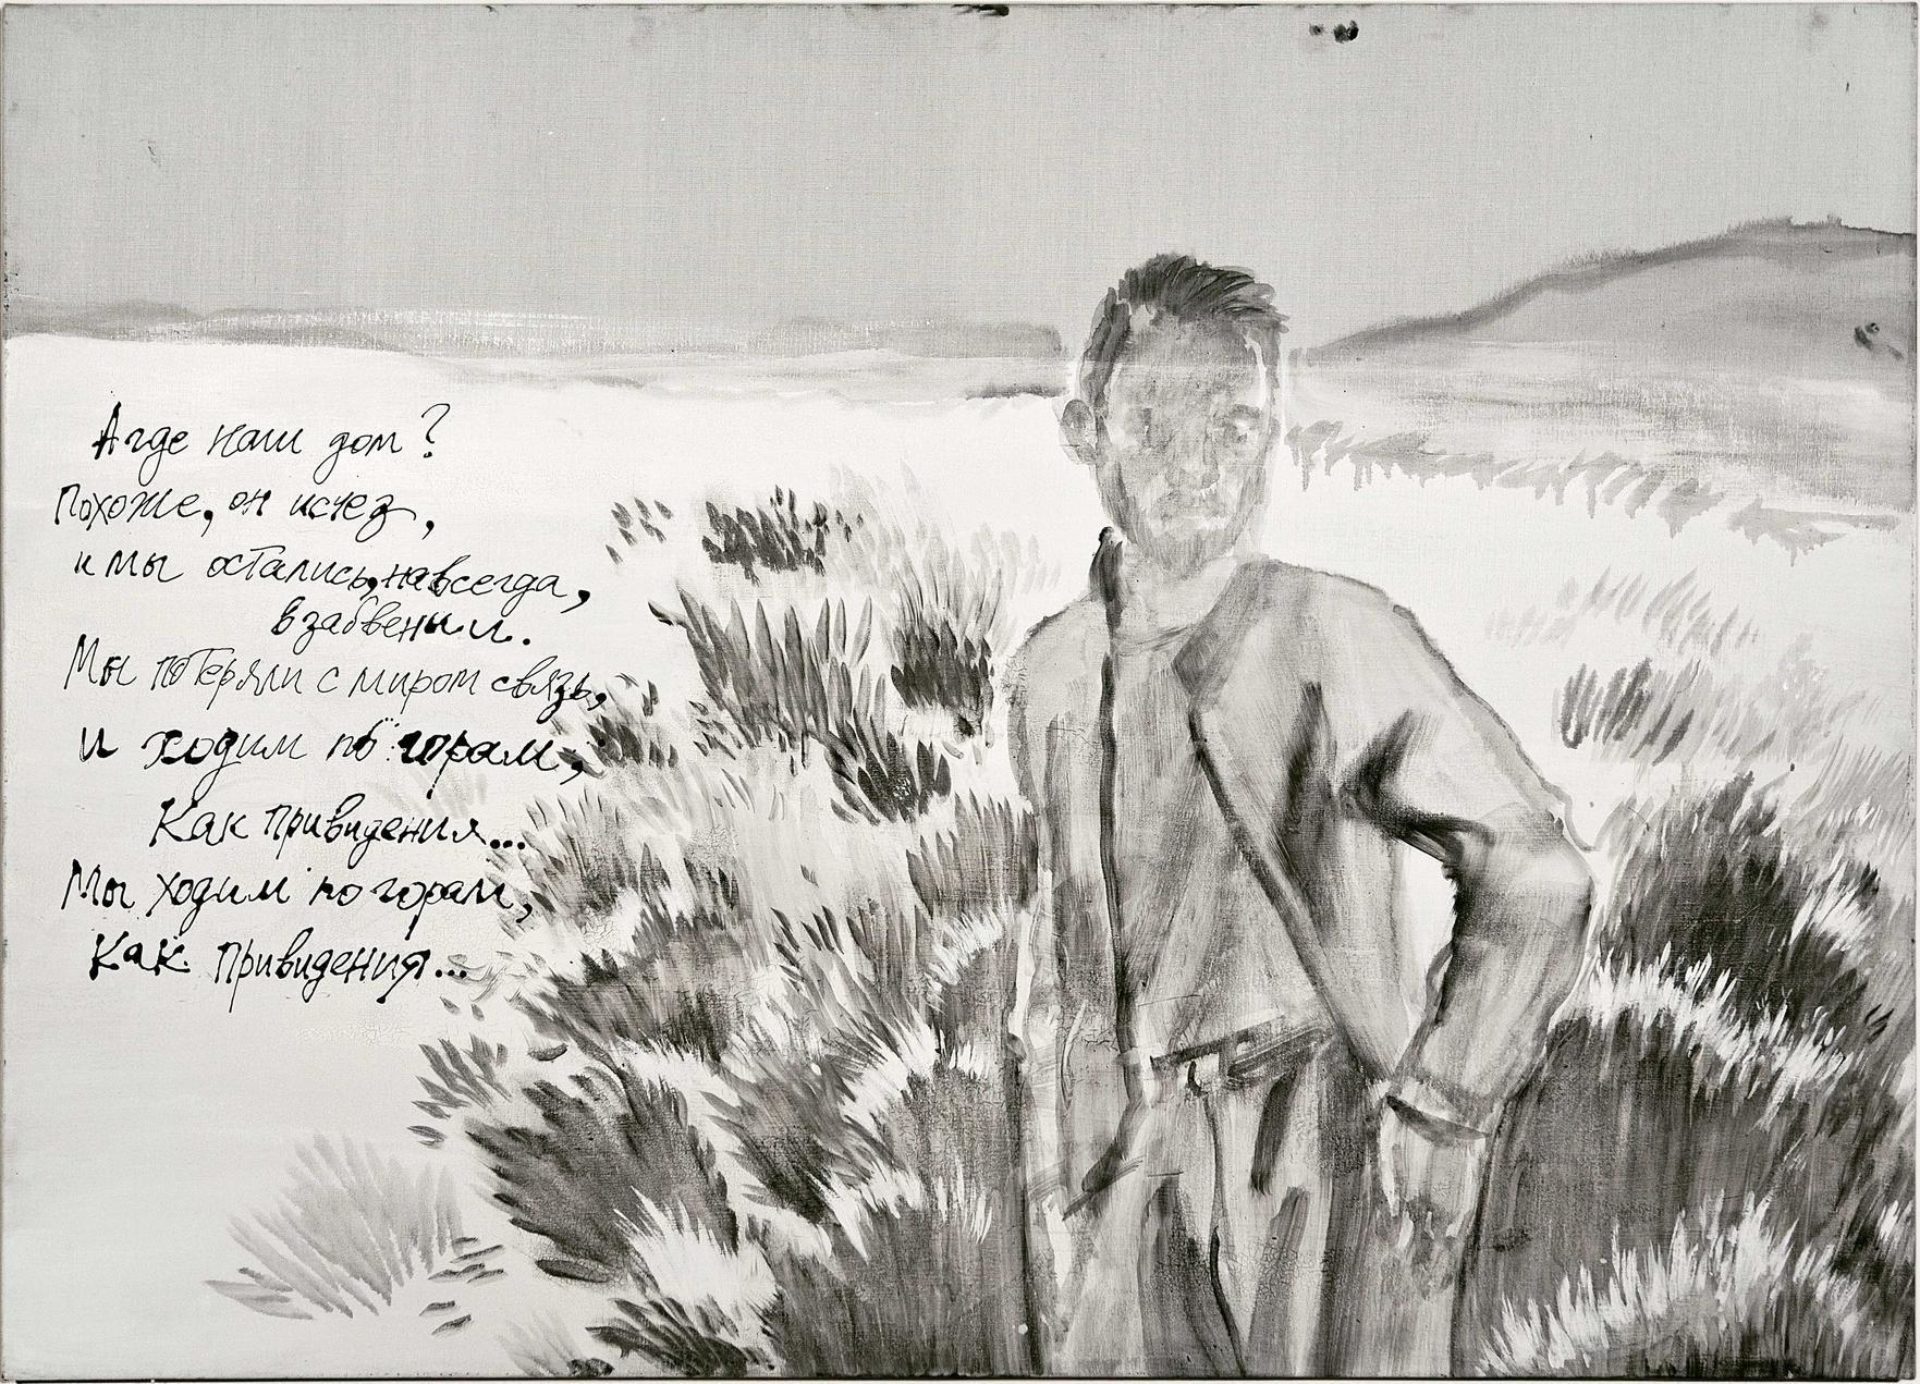 А где наш дом?
Похоже, он исчез,
и мы остались, навсегда,
в забвении.
Мы потеряли с миром связь,
и ходим по горам,
Как привидения...
Мы ходим по горам,
Как привидения...